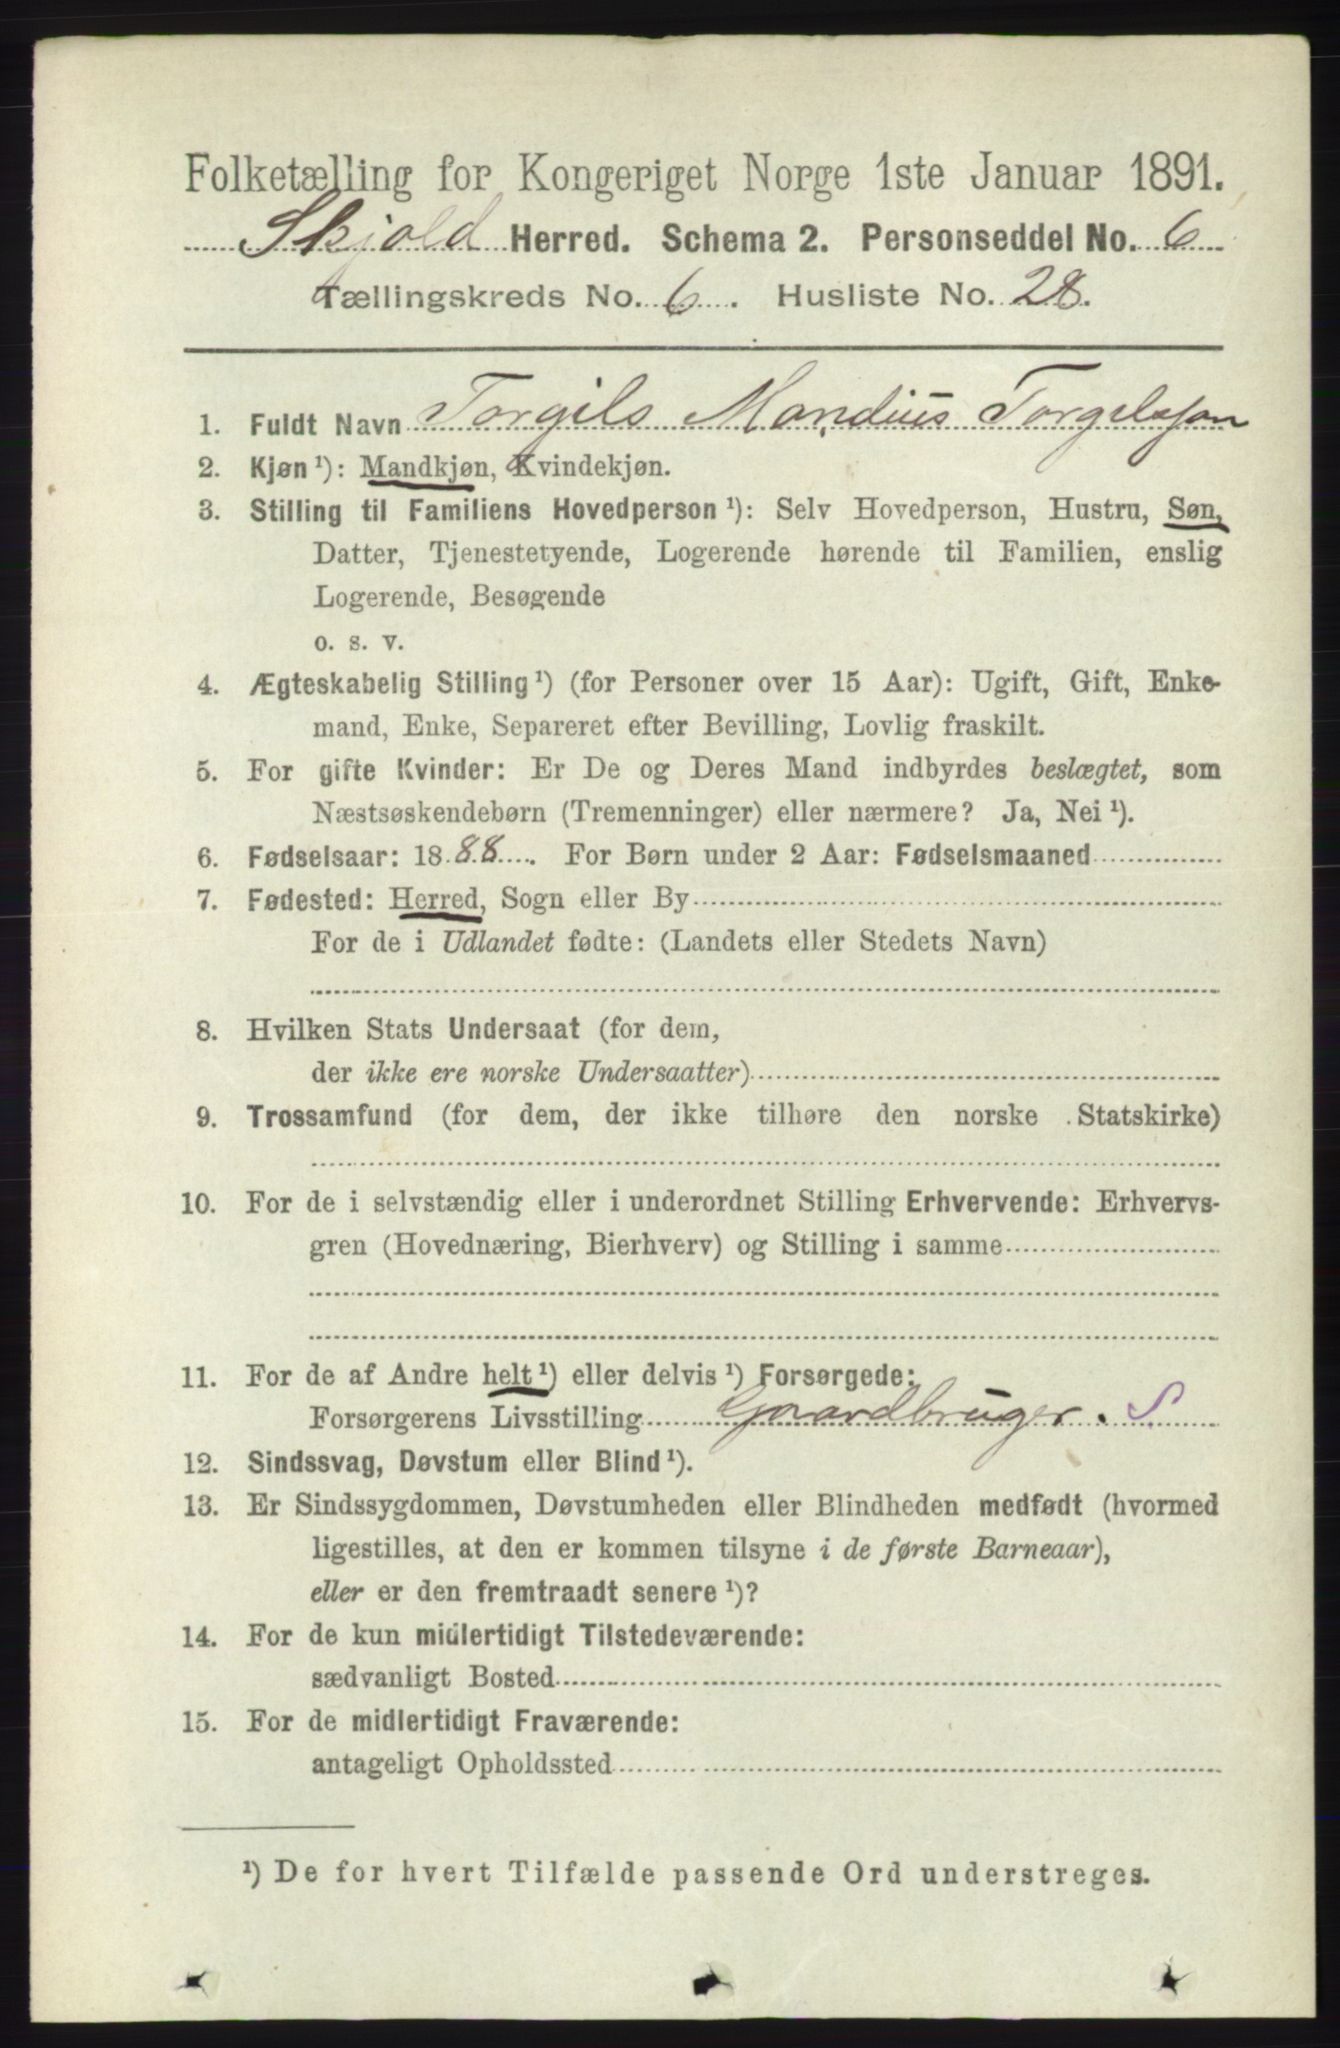 Folketælling for Kongeriget Norge 1ste Januar 1891.
Skjold Herred. Schema 2. Personseddel No. 6
Tællingskreds No. 6. Husliste No. 28.
1. Fuldt Navn Torgils Mandius Torgilsson
2. Kjøn ¹): Mandkjøn, Kvindekjøn.
3. Stilling til Familiens Hovedperson ¹): Selv Hovedperson, Hustru, Søn,
Datter, Tjenestetyende, Logerende hørende til Familien, enslig
Logerende, Besøgende
o. s. v.
4. Ægteskabelig Stilling ¹) (for Personer over 15 Aar): Ugift, Gift, Enke-
mand, Enke, Separeret efter Bevilling, Lovlig fraskilt.
5. For gifte Kvinder: Er De og Deres Mand indbyrdes beslægtet, som
Næstsøskendebørn (Tremenninger) eller nærmere? Ja, Nei ¹).
6. Fødselsaar: 1888. For Børn under 2 Aar: Fødselsmaaned
7. Fødested: Herred, Sogn eller By
For de i Udlandet fødte: (Landets eller Stedets Navn)
8. Hvilken Stats Undersaat (for dem,
der ikke ere norske Undersaatter)
9. Trossamfund (for dem, der ikke tilhøre den norske Statskirke)
10. For de i selvstændig eller i underordnet Stilling Erhvervende: Erhvervs-
gren (Hovednæring, Bierhverv) og Stilling i samme
11. For de af Andre helt ¹) eller delvis ¹) Forsørgede:
Forsørgerens Livsstilling Gaardbruger. S.
12. Sindssvag, Døvstum eller Blind ¹).
13. Er Sindssygdommen, Døvstumheden eller Blindheden medfødt (hvormed
ligestilles, at den er kommen tilsyne i de første Barneaar),
eller er den fremtraadt senere ¹)?
14. For de kun midlertidigt Tilstedeværende:
sædvanligt Bosted
15. For de midlertidigt Fraværende:
antageligt Opholdssted
¹) De for hvert Tilfælde passende Ord understreges.